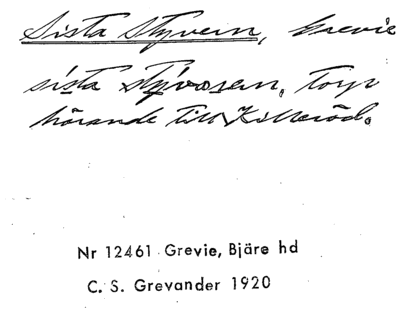 Sista Styvern, Grevie
sista styvosen, Torp
hörande till Killeröd.
Nr 12461 Grevie, Bjäre hd
C. S. Grevander 1920